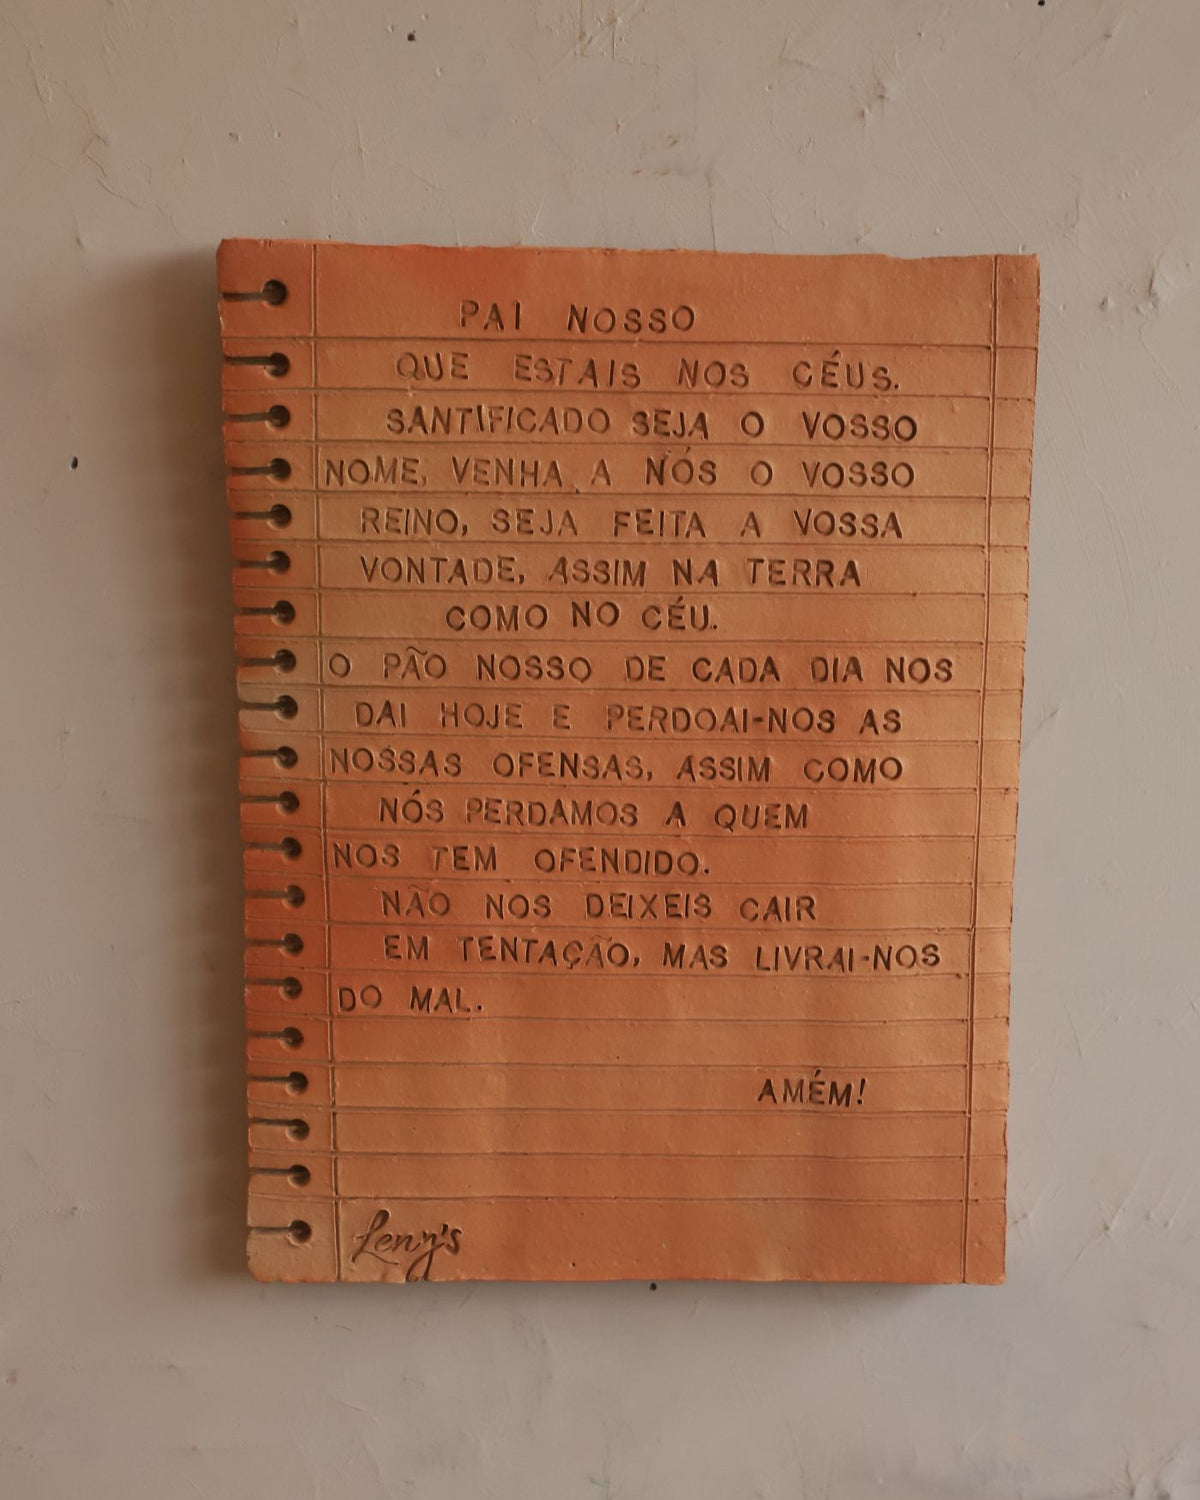 PAI NOSSO
QUE ESTAIS NOS CÉUS.
SANTIFICADO SEJA O VOSSO
NOME, VENHA A NÓS O VOSSO
REINO, SEJA FEITA A VOSSA
VONTADE, ASSIM NA TERRA
COMO NO CÉU.
O PÃO NOSSO DE CADA DIA NOS
DAI HOJE E PERDOAI-NOS AS
NOSSAS OFENSAS, ASSIM COMO
NÓS PERDAMOS A QUEM
NOS TEM OFENDIDO.
NÃO NOS DEIXEIS CAIR
EM TENTAÇÃO, MAS LIVRAI-NOS
DO MAL.
AMÉM!
Leny's